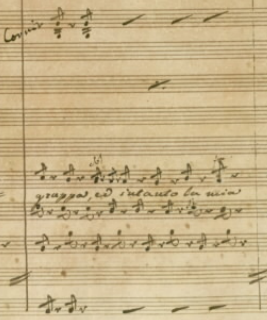 Corni
grappa, ed intanto la mia